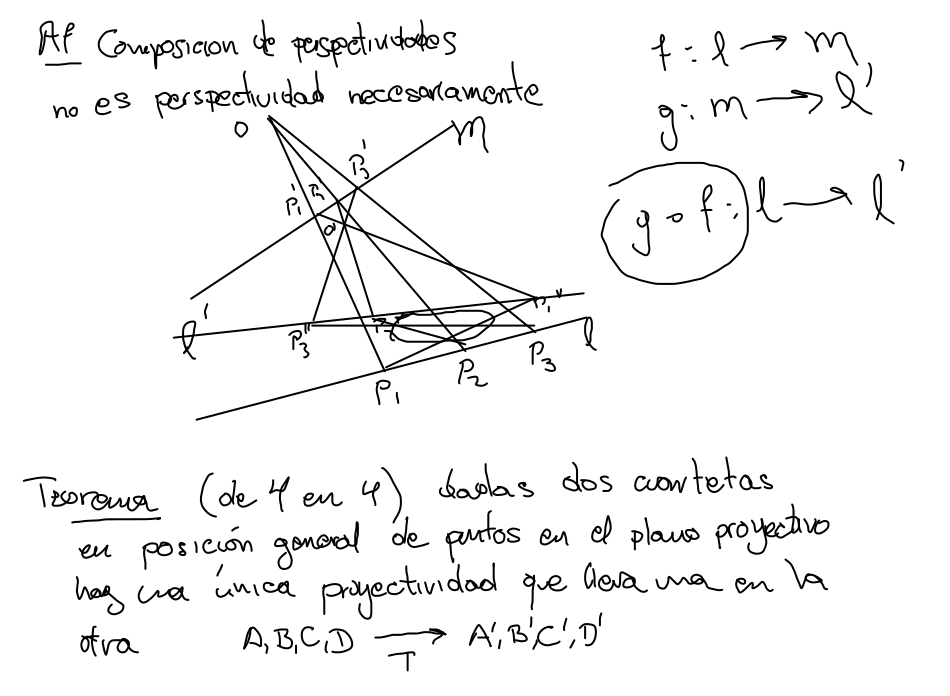 Af Composicion de perspectividades
no es perspectividad necesariamente
f : l → m
g : m → l'
g ∘ f : l → l'
O
m
P₃'
P₁'
P₂'
O'
l'
P₃''
P₂''
P₁''
l
P₁
P₂
P₃
Teorema (de 4 en 4) dadas dos cuartetas
en posición general de puntos en el plano proyectivo
hay una única proyectividad que lleva una en la
otra A, B, C, D → A', B', C', D'
T